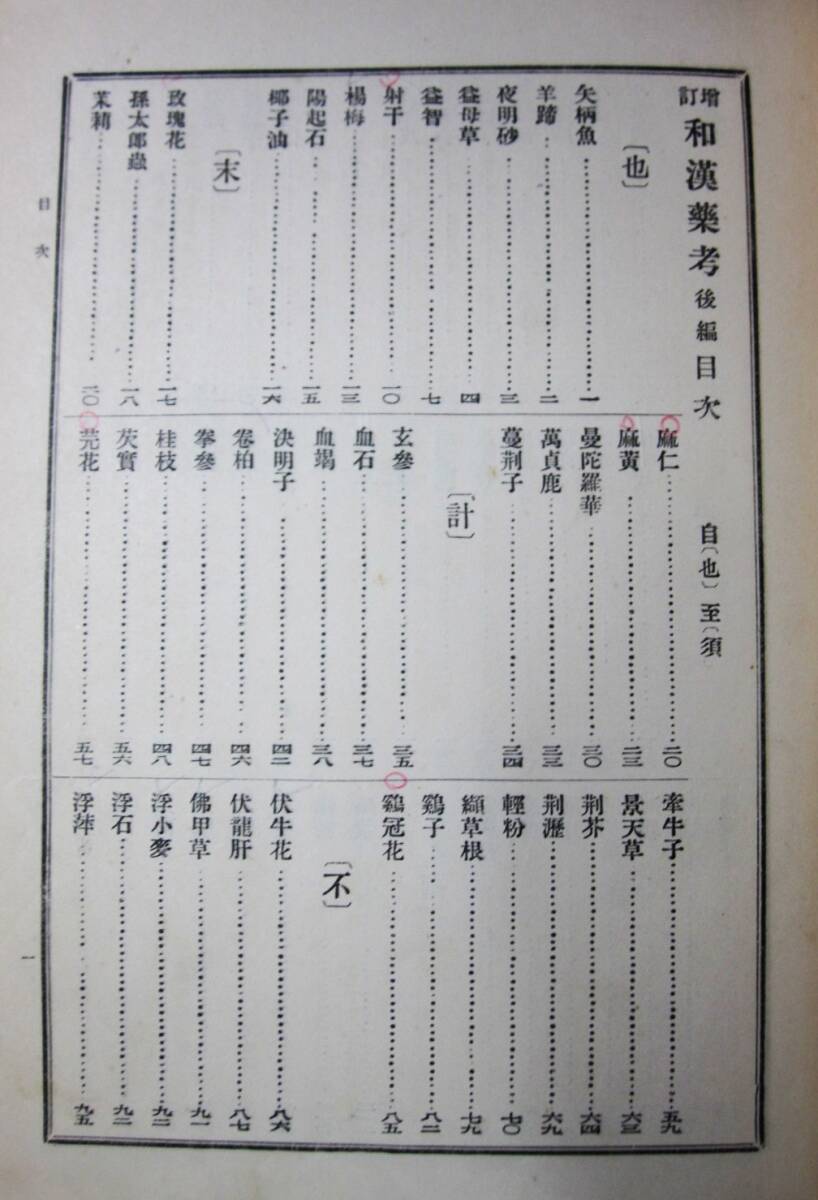 増訂 和漢藥考 後編 目次 自〔也〕至〔須〕
〔也〕
矢柄魚 一
羊蹄 二
夜明砂 三
益母草 四
益智 七
射干 一〇
楊梅 一三
陽起石 一五
椰子油 一六
〔末〕
玫瑰花 一七
孫太郎蟲 一八
茉莉 二〇
麻仁 二〇
麻黃 二三
曼陀羅華 三〇
萬貞鹿 三三
蔓荆子 三四
〔計〕
玄參 三五
血石 三七
血竭 三八
決明子 四二
卷柏 四六
拳參 四七
桂枝 四八
芡實 五六
芫花 五七
牽牛子 五九
景天草 六三
荆芥 六四
荆瀝 六九
輕粉 七〇
纈草根 七九
鷄子 八二
鷄冠花 八五
〔不〕
伏牛花 八六
伏龍肝 八七
佛甲草 九一
浮小麥 九二
浮石 九二
浮萍 九五
目次
一